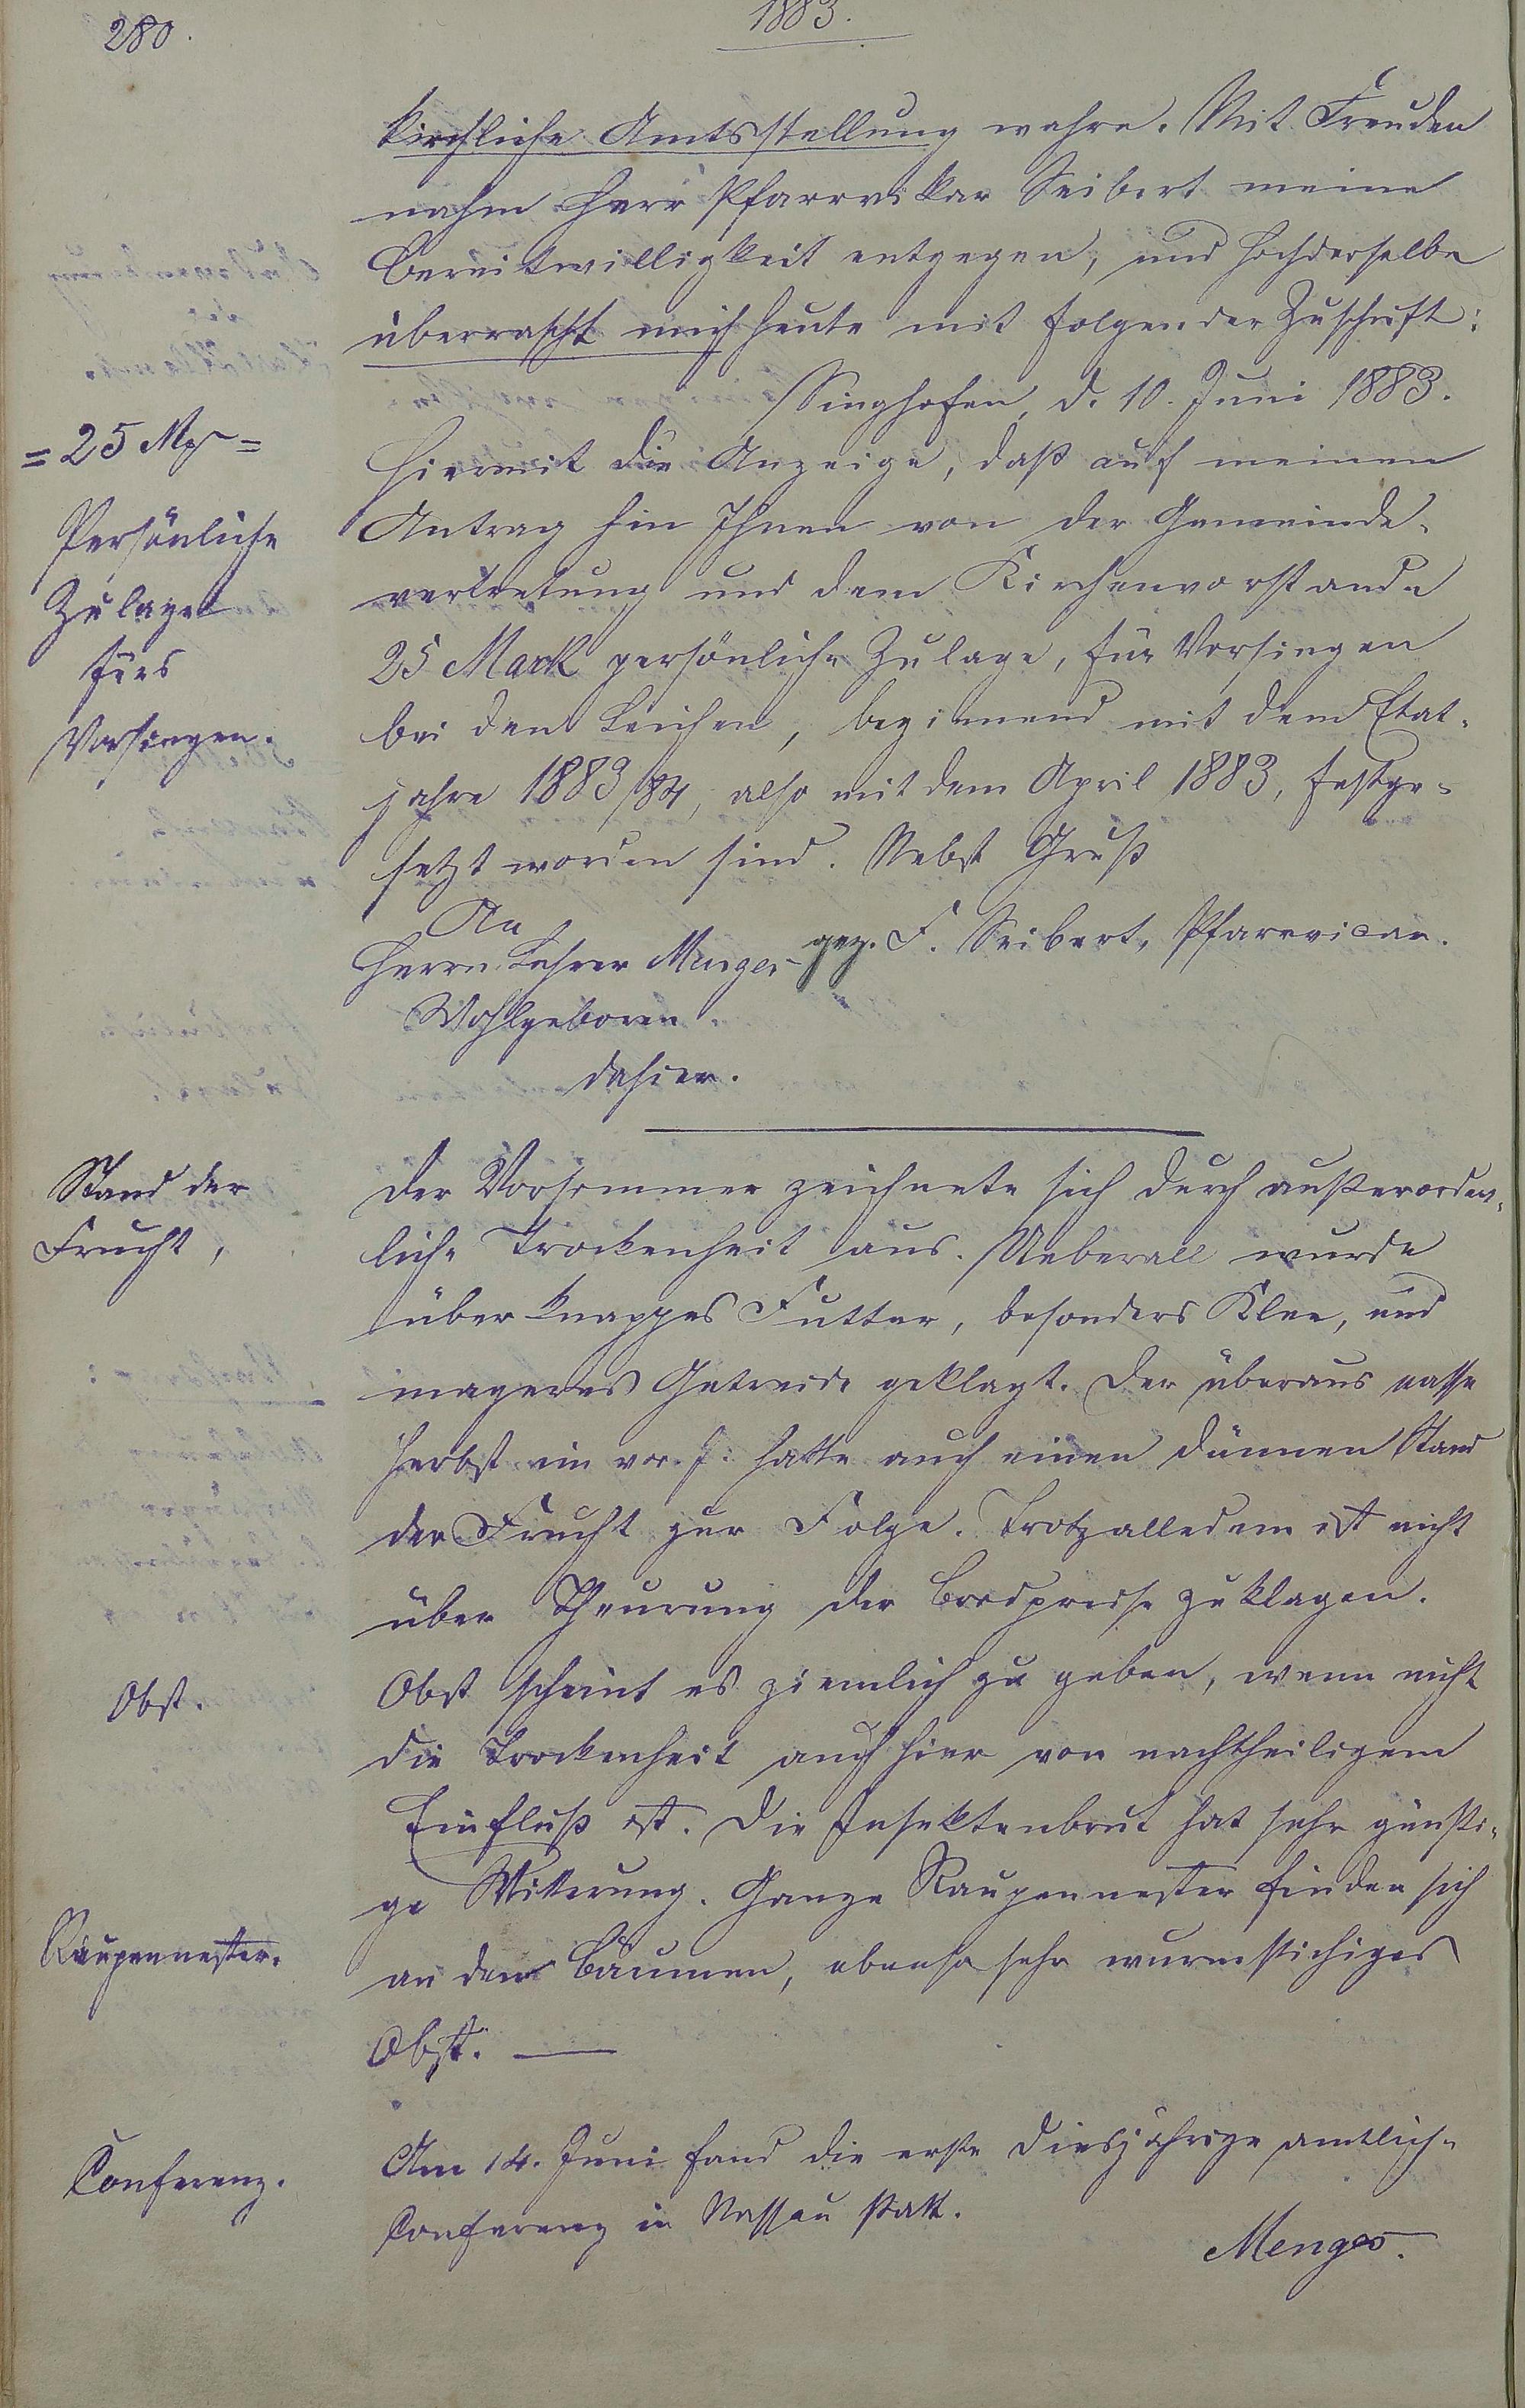 280.
1883.
kirchliche Amtsstellung wahre. Mit Freuden
nahm Herr Pfarrvikar Seibert meine
Bereitwilligkeit entgegen, und Hochderselbe
überrascht mich heute mit folgender Zuschrift:
Singhofen, d. 10. Juni 1883.
= 25 Mk =
Hiermit die Anzeige, daß auf meinen
Persönliche
Zulage
fürs
Vorsingen.
Antrag hin Ihnen von der Gemeinde-
vertretung und dem Kirchenvorstande
25 Mark persönliche Zulage, für Vorsingen
bei den Leichen, beginnend mit dem Etat-
jahre 1883/84, also mit dem April 1883, festge-
setzt worden sind. Nebst Gruß
An
gez. F. Seibert, Pfarrvicar.
Herrn Lehrer Menges
Wohlgeboren
dahier.
Stand der
Frucht,
Der Vorsommer zeichnete sich durch außerordent-
liche Trockenheit aus. Ueberall wurde
über knappes Futter, besonders Klee, und
mageres Getreide geklagt. Der überaus nasse
Herbst im vor. J. hatte auch einen dünnen Stand
der Frucht zur Folge. Trotzalledem ist nicht
über Theurung der Brodpreise zu klagen.
Obst.
Obst scheint es ziemlich zu geben, wenn nicht
die Trockenheit auch hier von nachtheiligem
Einfluß ist. Die Insektenbrut hat sehr günsti-
ge Witterung. Ganze Raupennester finden sich
Raupennester.
an den Bäumen, ebenso sehr wurmstichiges
Obst. —
Conferenz.
Am 14. Juni fand die erste diesjährige amtliche
Conferenz in Nassau statt.
Menges.